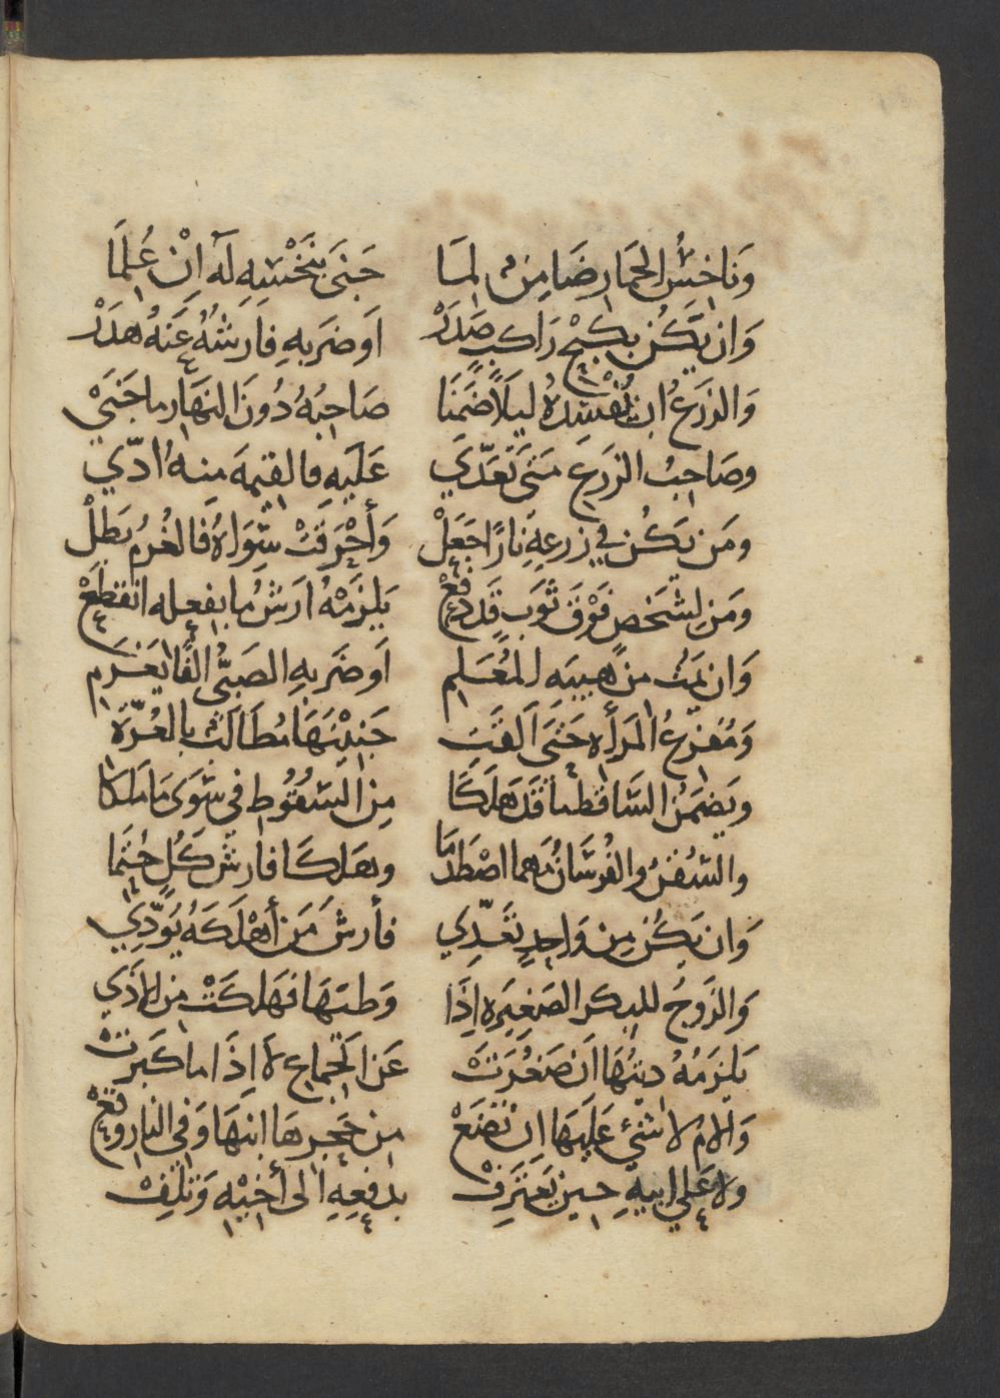 وَنَاخِسُ الحِمَارِ ضَامِنٌ لِمَا جَنَى بِنَخْسِهِ لَهُ اِنْ عُلِمَا
وَان يَكُن بِكَبْحِ رَاكِبٍ صَدَرْ اَو ضَربِهِ فارشُهُ عَنهُ هدَرْ
وَالزَرعُ ان تُفْسِدهُ لَيلاً ضَمِنَا صَاحِبُهُ دُونَ النهَار ما جَنَيْ
وصَاحِبُ الزَرعِ مَتَى تَعَدّي عَلَيهِ فالقيمَةَ منهُ ادّي
ومَن يَكُن في زرعِهِ نارًا جَعَلْ وَأحْرَقَتْ سِوَاهُ فَالغُرمُ بَطَلْ
ومَن لِشَخصٍ فَوْقَ ثَوبٍ قَد دفعْ يَلزَمْهُ ارشُ ما بفعله انقطَعْ
وَان يَمُت مِن هَيبَةِ المُعَلمِ اَو ضَربِهِ الصَبيُّ الفًا يَغرَمِ
وَمُفزعُ المَرأه حَتى اَلقَتِ جَنِيْنَهَا مُطَالَبٌ بالغُرّةِ
ويَضمَنُ السَاقطُ ما قَد هَلَكَا مِن السُقُوطِ في سِوَى مَا مَلكَا
والسُفنُ والفُرسَانُ مَهما اصْطَدَمَا وهَلَكَا فارشَ كُلٍ حَتَمَا
وَان يَكُن مِن وَاحِدٍ تعَدّي فأرشَ مَن أهْلَكَهُ يُوَدّي
وَالزَوجُ للبكر الصَغِيَره اِذَا وَطئهَا فهَلَكَتْ مِن الاذَي
يَلزَمُهُ ديتُهَا اَن صَغُرَتْ عَن الجمَاعِ لا اِذَا ما كَبرَتْ
وَالامُ لا شَئ عَلَيهَا اِن تَضَعْ مِن حَجرها ابنَهَا وَفي النارِ وقعْ
ولا عَلي ابيهِ حينَ يَعتَرِفْ بدَفعِهِ الى أخِيْهِ وَتَلِفْ